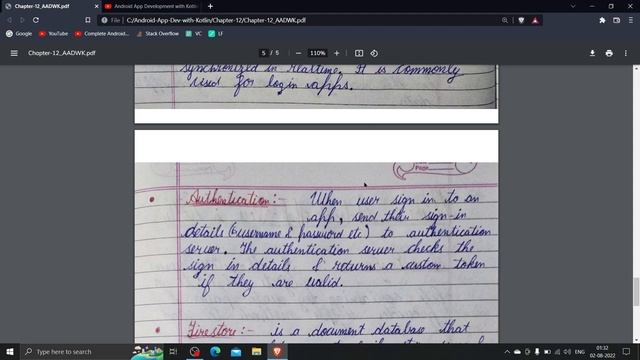 Chapter-12_AADWK.pdf
Android App Development with Kotlin
File
C:/Android-App-Dev-with-Kotlin/Chapter-12/Chapter-12_AADWK.pdf
Google
YouTube
Complete Android...
Stack Overflow
VC
LF
Chapter-12_AADWK.pdf
5 / 5
110%
synchronized in realtime. It is commonly
used for login apps.
Authentication:- When user sign in to an
app, send their sign-in
details (username & password etc) to authentication
server. The authentication server checks the
sign in details & returns a custom token
if they are valid.
Firestore:- is a document database that
Type here to search
ENG
01:32
02-08-2022